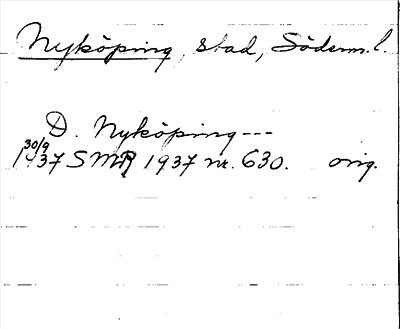 Nyköping, stad, Söderm. l.
D. Nyköping ---
30/9
1937 SMR 1937 nr. 630. orig.